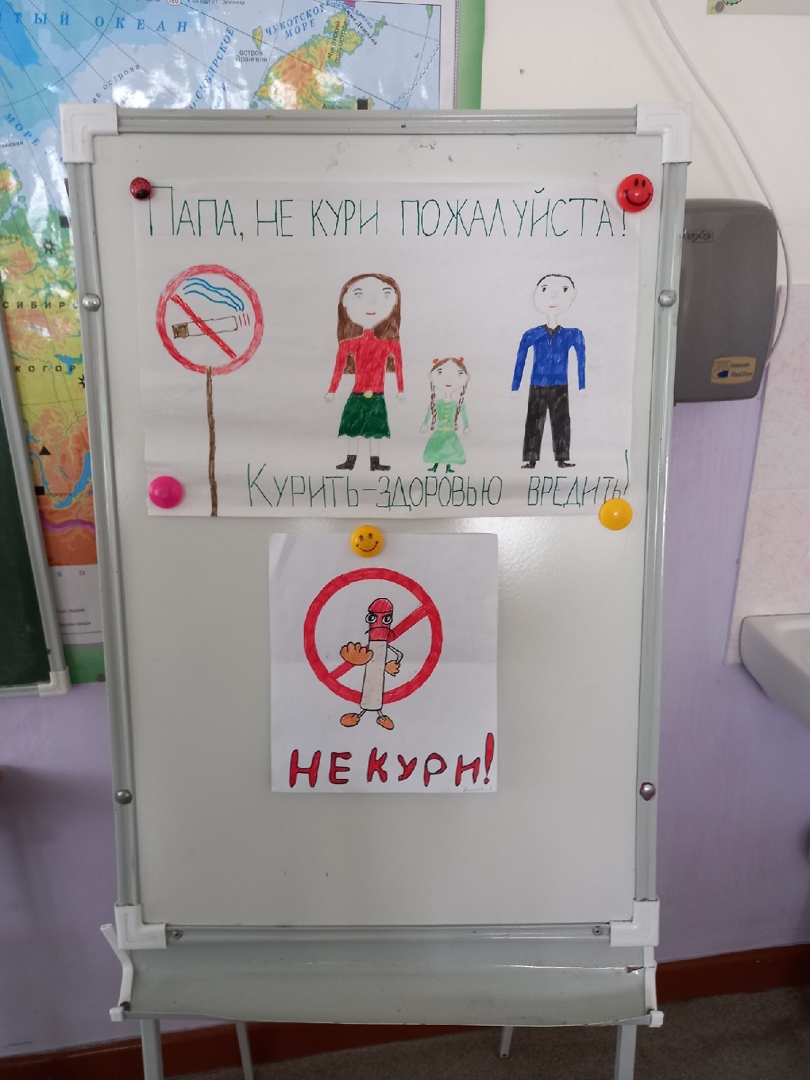 ТЫЙ ОКЕАН
ЧУКОТСКОЕ
МОРЕ
остров
Врангеля
МОРЕ
СИБИР
КОГОР
ПАПА, НЕ КУРИ ПОЖАЛУЙСТА!
КУРИТЬ-ЗДОРОВЬЮ ВРЕДИТЬ!
НЕ КУРИ!